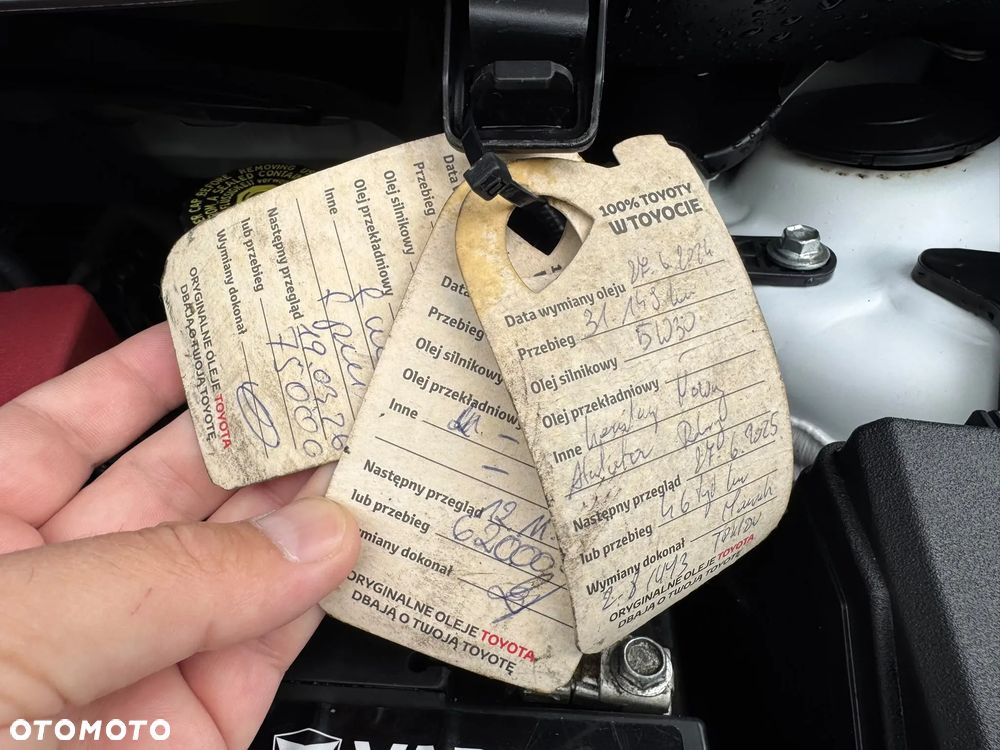 100% TOYOTY
W TOYOCIE
Data wymiany oleju 27.6.2024
Przebieg 31 143 km
Olej silnikowy 5W30
Olej przekładniowy
Inne Nowy
Następny przegląd 27.6.2025
lub przebieg 46 tyś km
Wymiany dokonał
ORYGINALNE OLEJE TOYOTA
DBAJĄ O TWOJĄ TOYOTĘ
Data
Przebieg
Olej silnikowy
Olej przekładniowy
Inne
Następny przegląd 12.11.
lub przebieg 62000
Wymiany dokonał
ORYGINALNE OLEJE TOYOTA
DBAJĄ O TWOJĄ TOYOTĘ
Data
Przebieg
Olej silnikowy
Olej przekładniowy
Inne
Następny przegląd 19.03.26
lub przebieg 75000
Wymiany dokonał
ORYGINALNE OLEJE TOYOTA
DBAJĄ O TWOJĄ TOYOTĘ
OTOMOTO